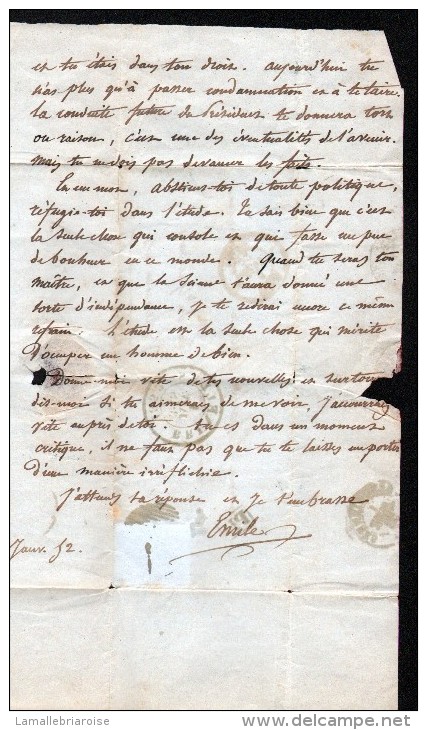 et tu étais dans ton droit. aujourd'hui tu
n'as plus qu'à passer condamnation et à te taire.
la conduite future du Président te donnera tort
ou raison, c'est une des éventualités de l'avenir.
mais tu ne dois pas devancer les faits.
En un mot, abstiens-toi de toute politique,
réfugie-toi dans l'étude. tu sais bien que c'est
la seule chose qui console et qui fasse un peu
de bonheur en ce monde. Quand tu seras ton
maître, et que la Science t'aura donné une
sorte d'indépendance, je te redirai encore ce même
refrain: L'étude est la seule chose qui mérite
d'occuper un homme de bien.
Donne-moi vite de tes nouvelles et surtout
dis-moi si tu aimerais de me voir. J'accourrai
vite auprès de toi. tu es dans un moment
critique, il ne faut pas que tu te laisses emporter
d'une manière irréfléchie.
J'attends ta réponse et je t'embrasse
Emile
Janv. 52.
Lamallebriaroise
delcampe.net